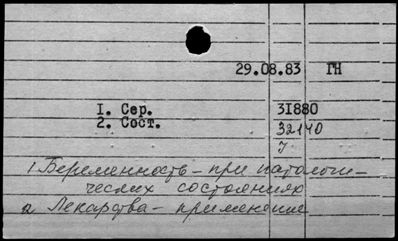 29.08.83 ГН
1. Сер. 31880
2. Сост. 32140
7
1 Беременность – при патологи-
ческих состояниях
2 Лекарства – применение